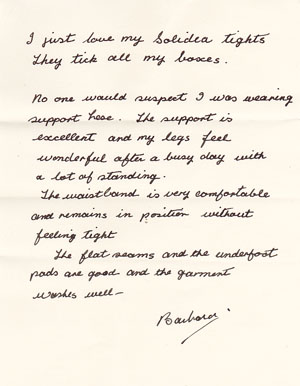 I just love my Solidea tights
They tick all my boxes.
No one would suspect I was wearing
support hose. The support is
excellent and my legs feel
wonderful after a busy day with
a lot of standing.
The waistband is very comfortable
and remains in position without
feeling tight
The flat seams and the underfoot
pads are good and the garment
washes well—
Barbara